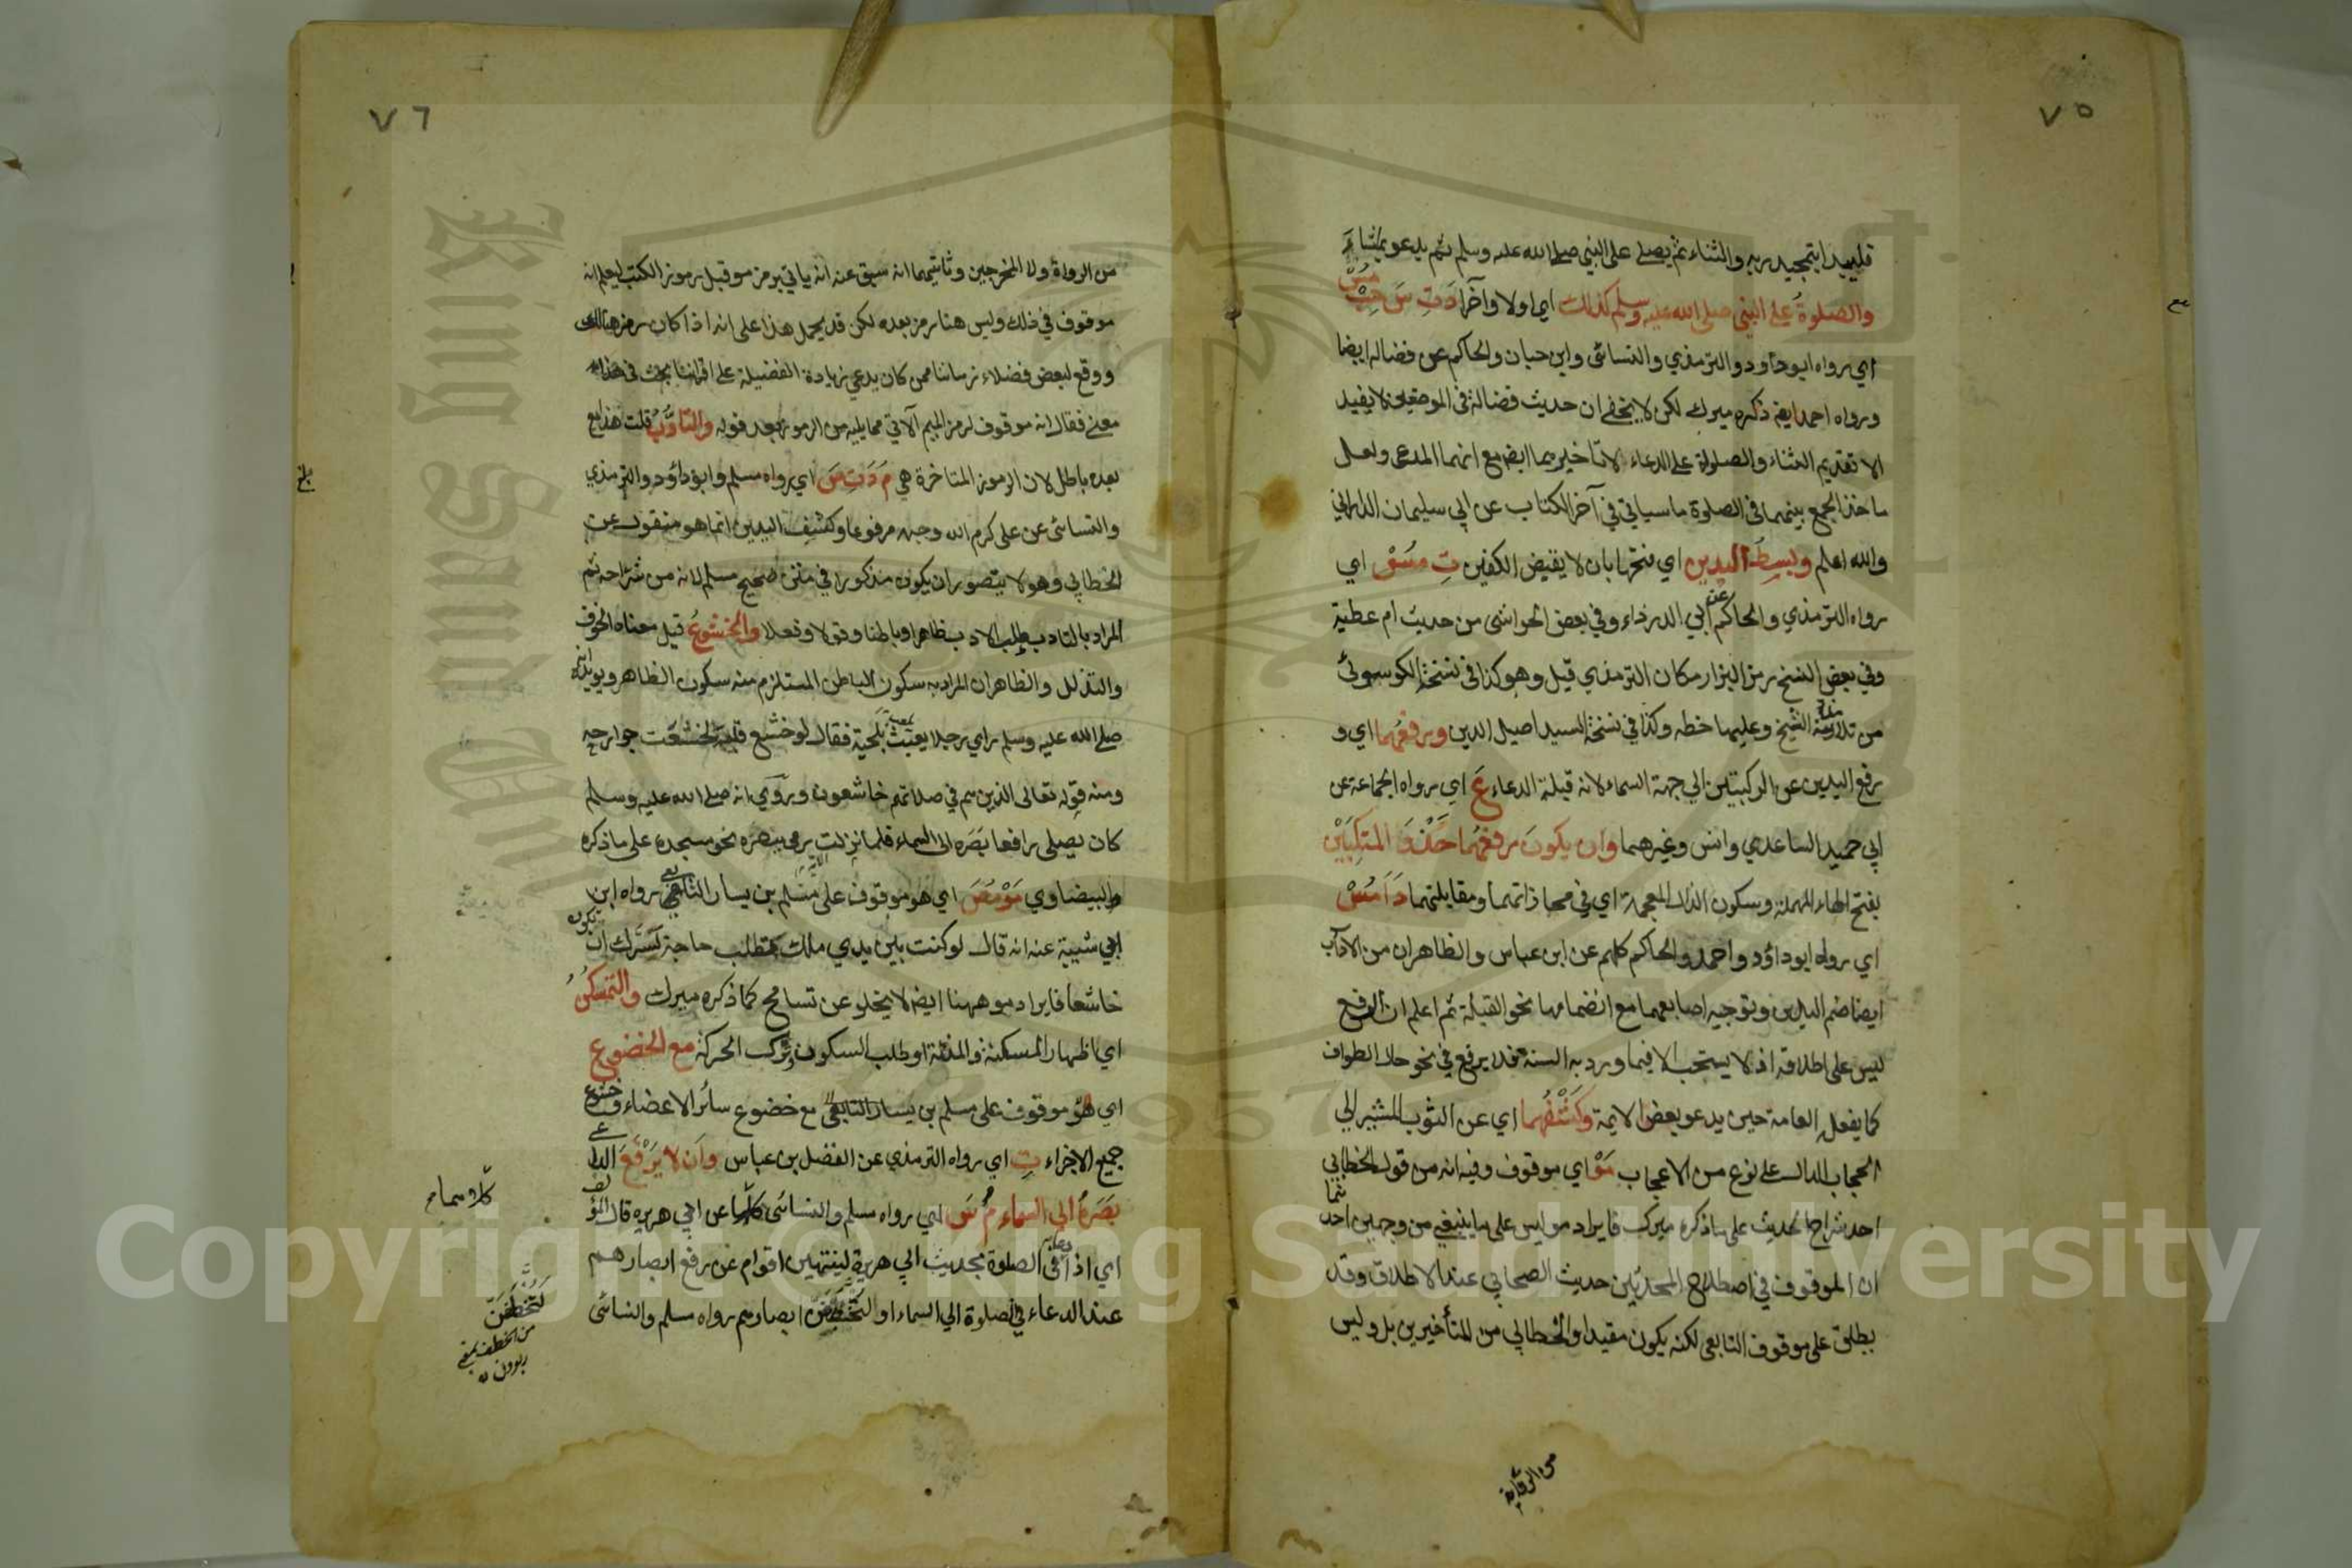 ٧٥
فليبدا بتمجيد ربه والثناء ثم يصلي على النبي صلى الله عليه وسلم ثم يدعو بما شاء
والصلوة على النبي صلى الله عليه وسلم كذلك اي اولا وآخرا د ت س حب مس
اي رواه ابو داود والترمذي والنسائى وابن حبان والحاكم عن فضالة ايضا
ورواه احمد ايضا ذكره ميرك لكن لا يخفى ان حديث فضالة في الموضعين لا يفيد
الا تقديم الثناء والصلوة على الدعاء لا تاخيرهما ايضا مع انهما المدعى ولعل
ماخذ الجمع بينهما فى الصلوة ما سياتي في آخر الكتاب عن ابي سليمان الداراني
والله اعلم وبسط اليدين اي فتحها بان لا يقبض الكفين ت مس اي
رواه الترمذي والحاكم عن ابي الدرداء وفي بعض الحواشى من حديث ام عطية
وفي بعض النسخ رمز البزار مكان الترمذي قيل وهو كذا فى نسخة الكوسوئى
من تلامذة الشيخ وعليها خطه وكذا في نسخة السيد اصيل الدين ورفعهما اي و
رفع اليدين عن الركبتين الي جهة السماء لانه قبلة الدعاء ع اي رواه الجماعة عن
ابي حميد الساعدي وانس وغيرهما وان يكون رفعهما حذو المنكبين
بفتح الحاء المهملة وسكون الذال المعجمة اي في محاذاتهما ومقابلتهما د ا مس
اي رواه ابو داؤد واحمد والحاكم كلهم عن ابن عباس والظاهر ان من الاداب
ايضا ضم اليدين وتوجيه اصابعهما مع انضمامها نحو القبلة ثم اعلم ان الرفع
ليس على اطلاقه اذ لا يستحب الا فيما ورد به السنة فلا يرفع في نحو حال الطواف
كما يفعل العامة حين يدعو بعض الايمة وكشفهما اي عن الثوب المشير الي
الحجاب الدال على نوع من الاعجاب مو اي موقوف وفيه انه من قول الخطابي
احد شراح الحديث على ما ذكره ميرك فايراد مو ليس على ما ينبغي من وجهين احدهما
ان الموقوف في اصطلاح المحدثين حديث الصحابي عند الاطلاق وقد
يطلق على موقوف التابعى لكنه يكون مقيدا والخطابي من المتأخرين بل وليس
٧٦
من الرواة ولا المخرجين وثانيهما انه سبق عنه انه ياتي برمز مو قبل رموز الكتب ليعلم انه
موقوف في ذلك وليس هنا رمز بعده لكن قد يحمل هذا على انه اذا كان رمز هنالك
ووقع لبعض فضلاء زماننا ممن كان يدعي زيادة الفضيلة على اقراننا بحث في هذا
معنى فقال انه موقوف لرمز الميم الآتي مما يليه من الرموز بعد قوله والتادب قلت هذا مع
بعده باطل لان الرموز المتاخرة هي م د ت س اي رواه مسلم وابو داؤد والترمذي
والنسائى عن على كرم الله وجهه مرفوعا وكشف اليدين انما هو منقول عن
الخطابي وهو لا يتصور ان يكون مذكورا في متن صحيح مسلم لانه من شراحه ثم
المراد بالتادب طلب الادب ظاهرا وباطنا وقولا وفعلا والخشوع قيل معناه الخوف
والتذلل والظاهر ان المراد به سكون الباطن المستلزم منه سكون الظاهر ويويده انه
صلى الله عليه وسلم راي رجلا يعبث بلحيته فقال لو خشع قلبه لخشعت جوارحه
ومنه قوله تعالى الذين هم في صلاتهم خاشعون وروي انه صلى الله عليه وسلم
كان يصلى رافعا بصره الى السماء فلما نزلت رمى ببصره نحو مسجده على ما ذكره
البيضاوي مو مص اي هو موقوف على مسلم بن يسار التابعي رواه ابن
ابي شيبة عنه انه قال لو كنت بين يدي ملك تطلب حاجة لسرك ان تكون
خاشعا فايراد مو ههنا ايضا لا يخلو عن تسامح كما ذكره ميرك والتمسكن
اي اظهار المسكنة والمذلة او طلب السكون وترك الحركة مع الخضوع
اي هو موقوف على مسلم بن يسار التابعي مع خضوع سائر الاعضاء وخشوع
جميع الاجزاء ت اي رواه الترمذي عن الفضل بن عباس وان لا يرفع
بصره الى السماء م س اي رواه مسلم والنسائى كلاهما عن ابي هريره قال المؤلف
اي اذا دعا في الصلوة بحديث ابي هريرة لينتهين اقوام عن رفع ابصارهم
عند الدعاء في الصلوة الي السماء او لتخطفن ابصارهم رواه مسلم والنسائى
كلاهما
لتخطفن
من الخطف بمعنى
ربودن